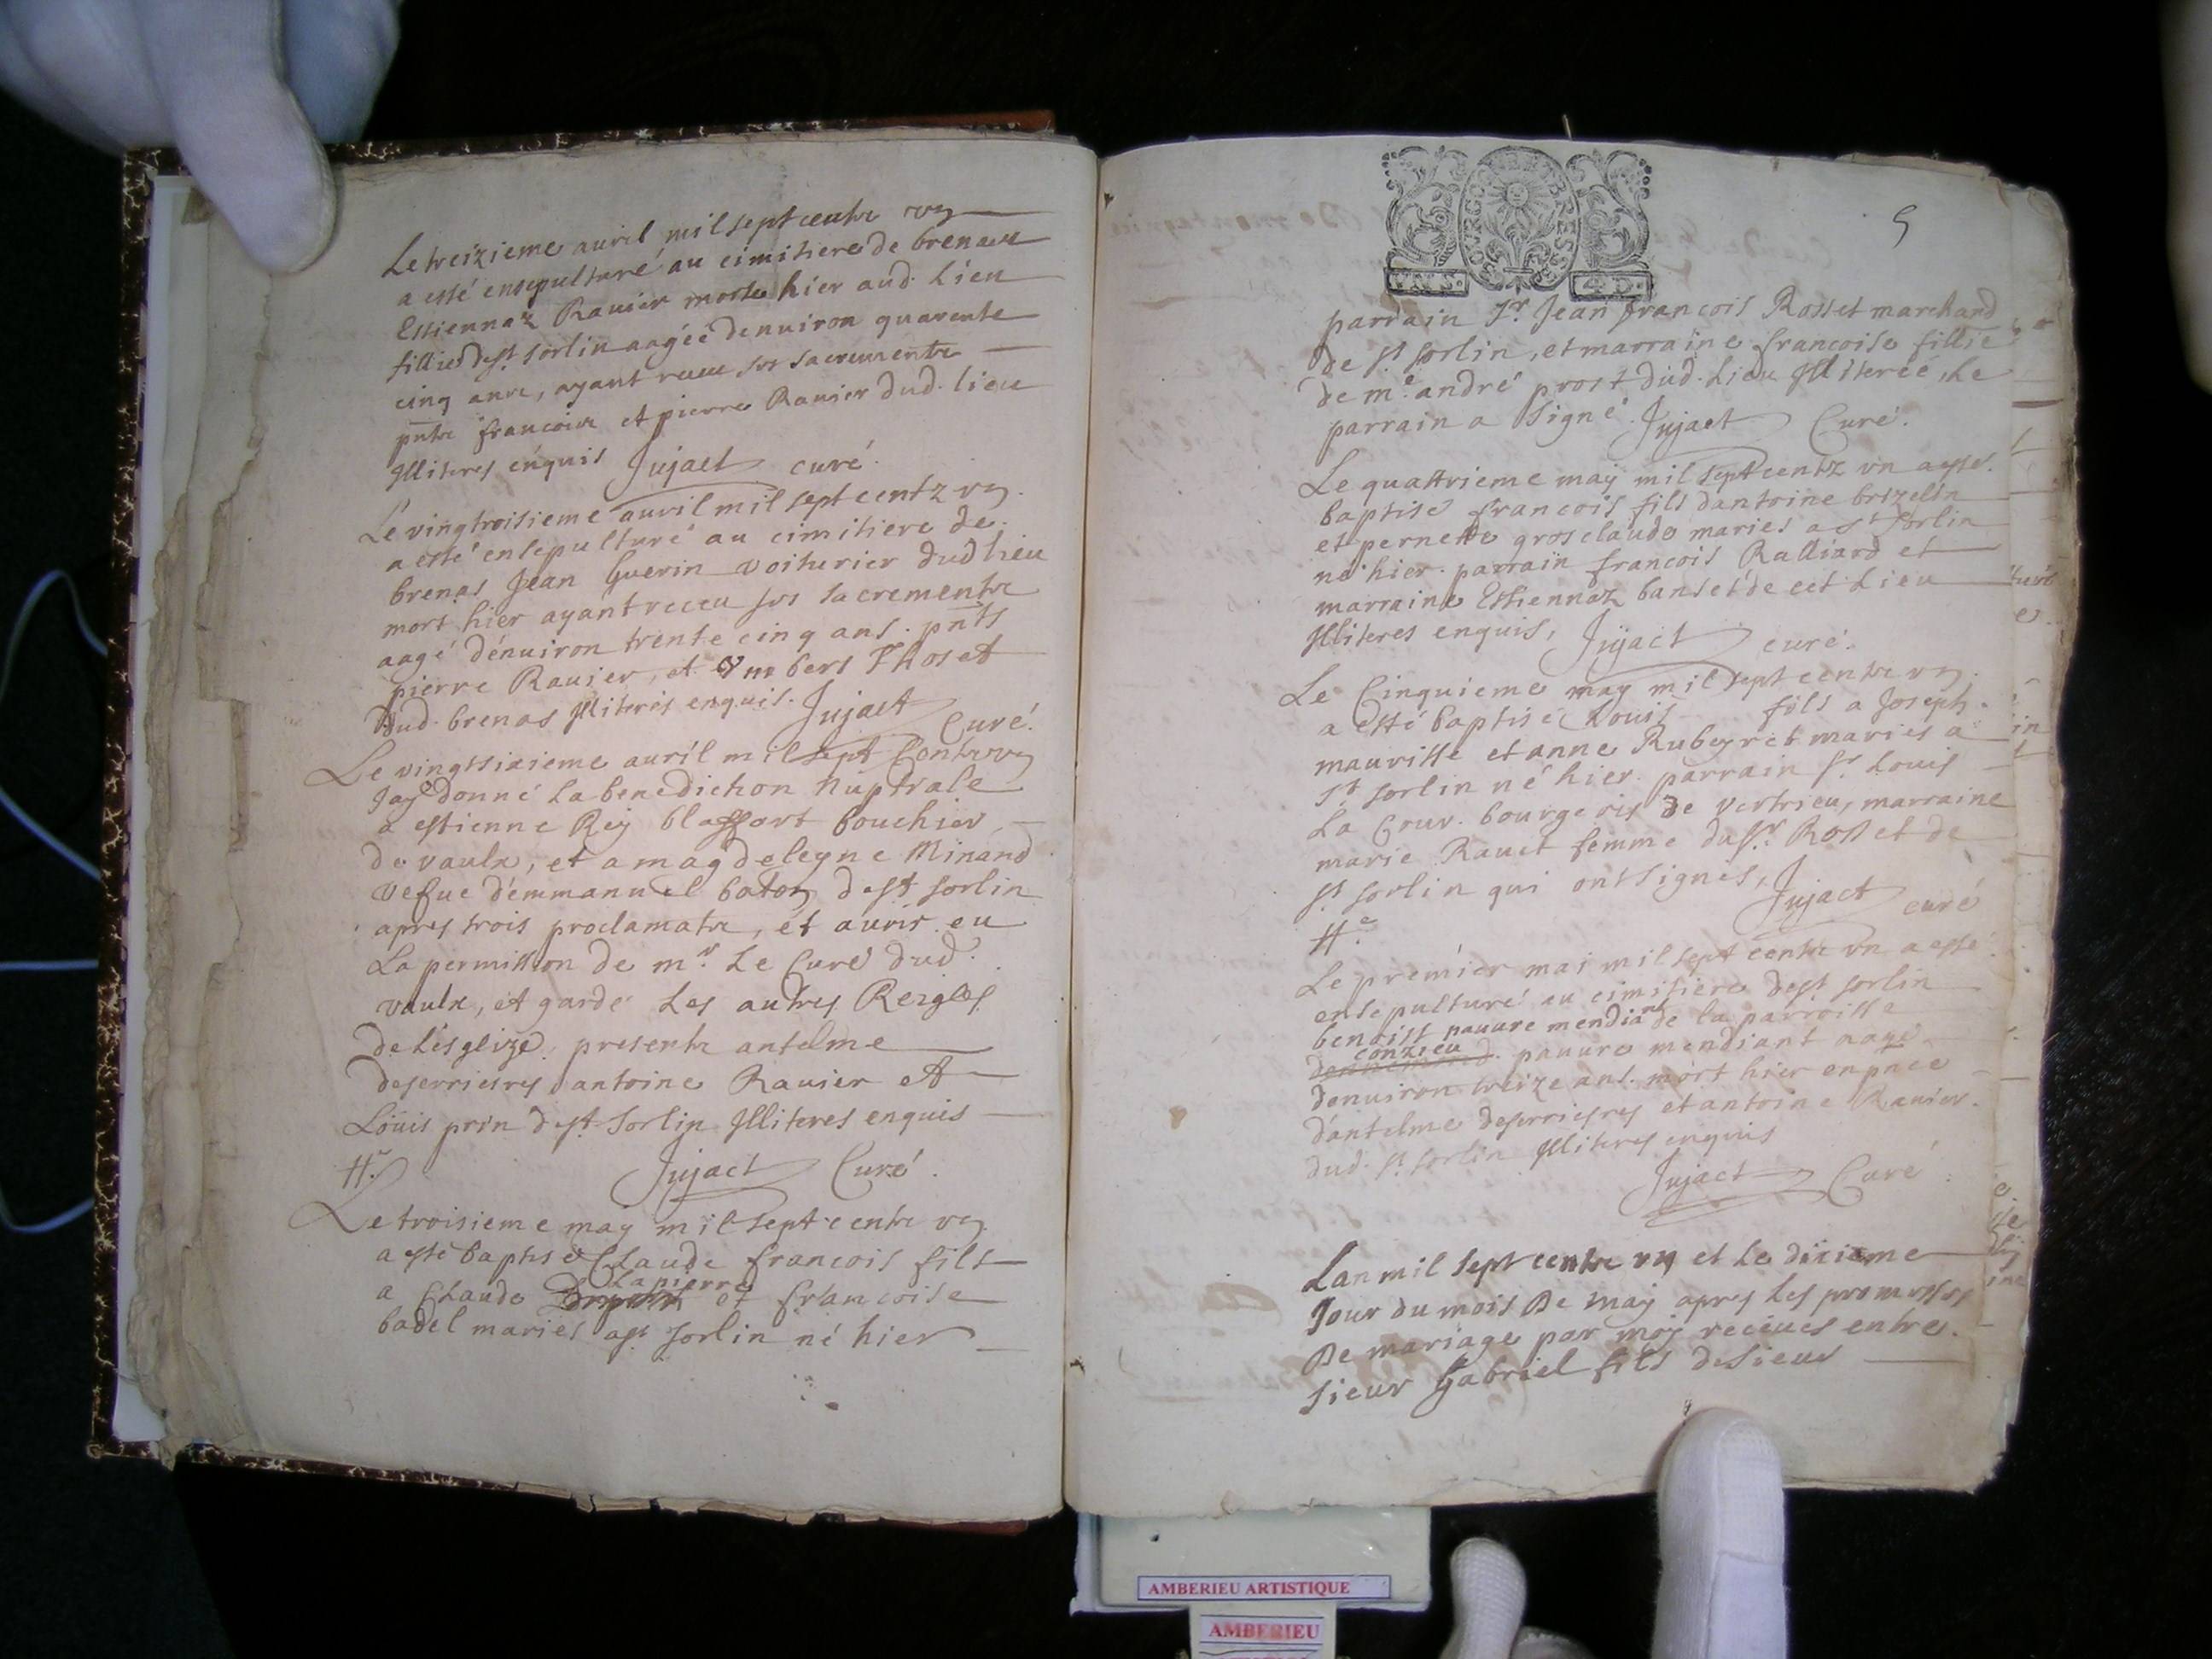 Le treizieme auril mil sept centz vn
a esté ensepulturé au cimitiere de brenau
Estiennaz Rauier morte hier aud. Lieu
fillie de st. sorlin aagéé denuiron quarente
cinq ans, ayant receu ses sacrements
pnts francois et pierre Rauier dud. lieu
Illiteres enquis Jujact curé.
Le vingtroisieme auril mil sept centz vn.
a esté ensepulturé au cimitiere de
brenas Jean Guerin voiturier dud lieu
mort hier ayant receu ses sacrements
aagé dénuiron trente cinq ans. pnts
pierre Rauier, et Vmbert Thoset
dud. brenas Illiteres enquis. Jujact
Curé.
Le vingtsixieme auril mil sept Centz vn
Jay donné La benediction nuptiale
a estienne Rey blassart bouchier
de vaulx, et a magdeleyne Minand
vefue démmanuel boton de st sorlin
apres trois proclamats, et auoir eu
La permission de mr. Le Curé dud.
vaulx, et garde Les autres Reigles
de Lésgeize. presents antelme
deserriesres antoine Rauier et
Loüis prin de st. Sorlin Illiteres enquis
Jujact Curé.
Le troisieme may mil sept centz vn
a esté baptisé Claude francois fils
Lapierre
a Claude et francoise
badel mariés a st sorlin né hier
BOURGOGNE ET BRESSE
4 D.
5
parrain Sr. Jean francois Rosset marchand
de st sorlin, et marraine francoise fillie
de me. andré prost dud. Lieu Illiterée, Le
parrain a signé. Jujact Curé.
Le quattrieme may mil sept centz vn a esté.
baptisé francois fils dantoine brizelin
et pernette grosclaude mariés a st sorlin
né hier. parrain francois Ralliard et
marraine Estiennaz banset de cet Lieu
Illiteres enquis, Jujact curé.
Le Cinquieme may mil sept centz vn.
a esté baptisé Louis fils a Joseph
mauritte et anne Rubeyret mariés a
st sorlin né hier. parrain sr Louis
La Cour. bourgeois de vertrieu, marraine
marie Rauet femme du sr. Rosset de
st sorlin qui ont signés, Jujact curé
Le premier mai mil sept centz vn a esté
ensepulturé au cimitiere de st sorlin
benoist pauure mendiant de la parroisse
conzieu pauure mendiant aagé
denuiron treize ans. mort hier en pnce
dántelme deserriesres et antoine Rauier.
dud. st. sorlin Illiteres enquis
Jujact Curé
Lan mil sept centz vn et Le dixieme
Jour du mois De may apres Les promesses
De mariage par moy receues entre.
sieur Gabriel fils de sieur
AMBERIEU ARTISTIQUE
AMBERIEU